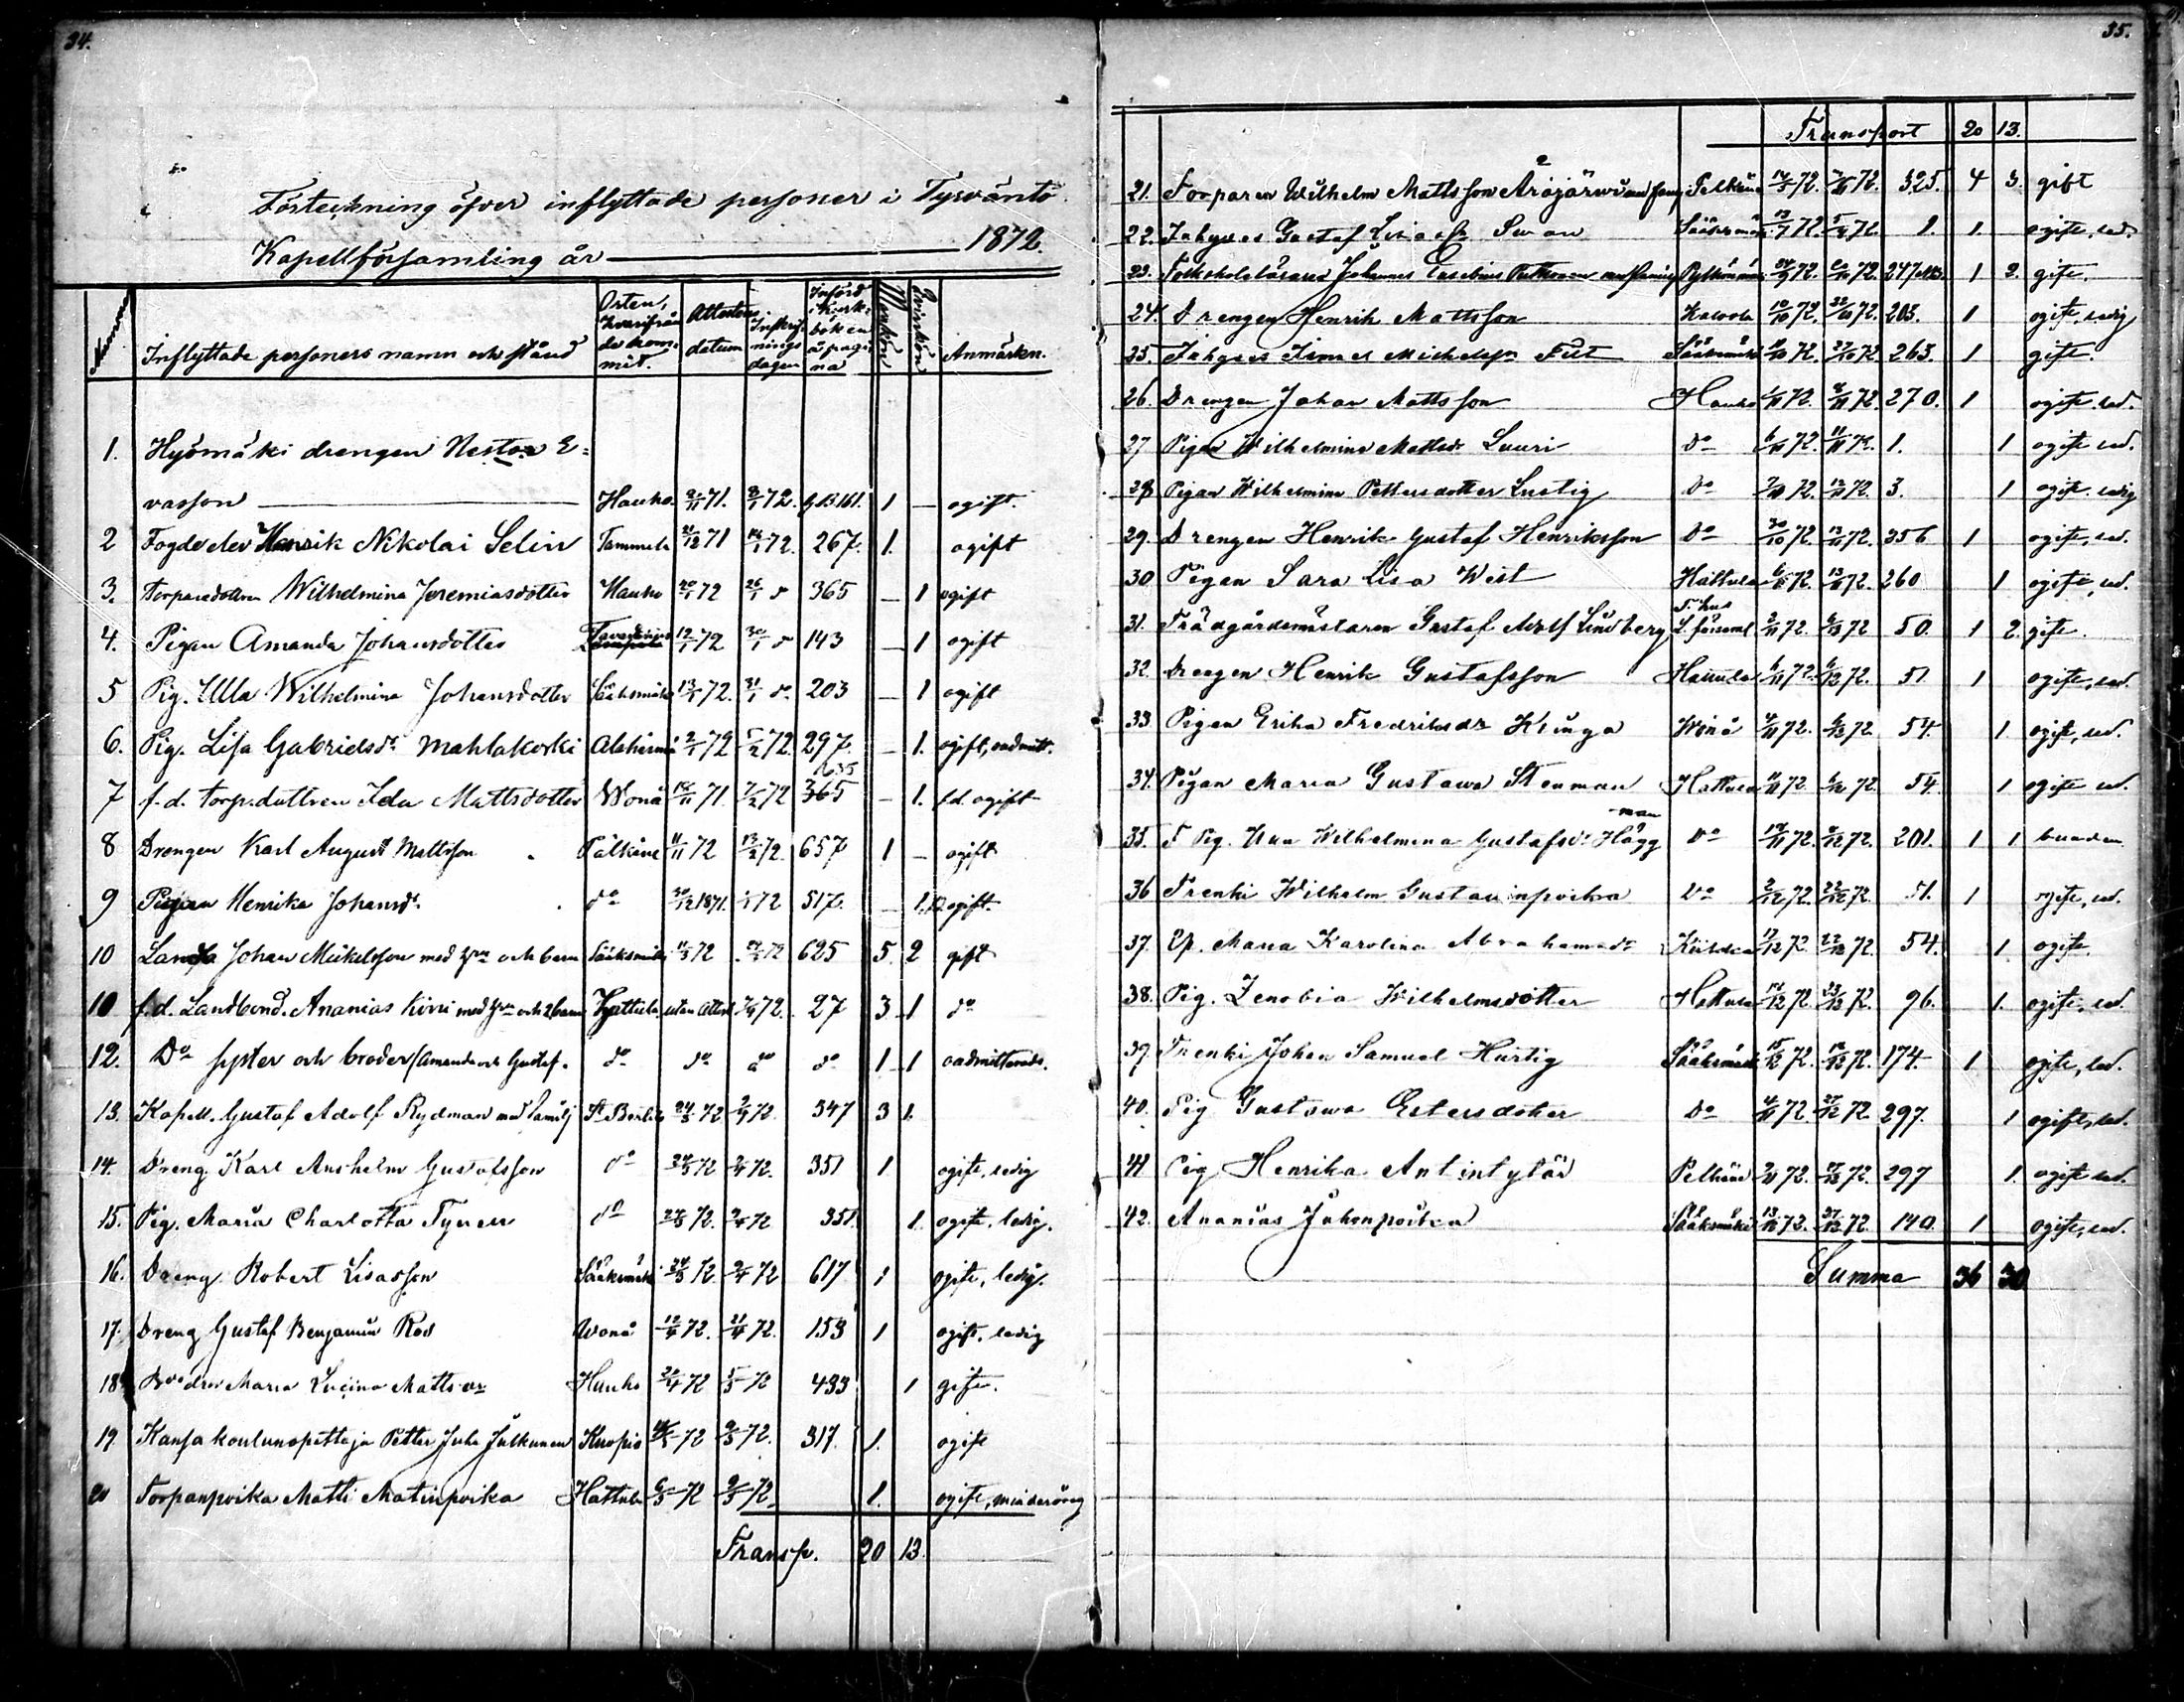 34.
Förteckning öfver inflyttade personer i Tyrväntö
Kapellförsamling år 1872.
Inflyttade personers namn och stånd Orten, hvarifrån de kommit. Attestens datum Inskrifnings dagen Införd i kyrkboken å pagina Mankön Qvinkön Anmärkn.
1. Hyömäki drengen Nestor E=
vasson Hauho 2/11 71. 2/1 72. 161. 1 — ogift.
2 Fogde elev Henrik Nikolai Selin Tammela 21/12 71 14/1 72. 267. 1. ogift
3. Torparedottren Wilhelmina Jeremiasdotter Hauho 20/1 72 26/1 " 365 — 1 ogift
4. Pigan Amanda Johansdotter 12/1 72 30/1 " 143 — 1 ogift
5 Pig. Ulla Wilhelmina Johansdotter Sääksmäki 13/1 72. 31/1 do 203 — 1 ogift
6. Pig. Lisa Gabrielsdr Mahlakoski 2/1 72 5/2 72. 297. — 1. ogift, oadmitt.
7 f.d. torp.dottren Ida Mattsdotter Wonå 16/11 71 7/2 72 365 — 1. f.d. ogift
8 Drengen Karl August Mattsson Pälkäne 11/11 72 13/2 72. 657 1 — ogift
9 Pigan Henrika Johansdr do 30/12 1871. 72 517. — 1. ogift
10 Johan Mickelsson med hru och barn Sääksmäki 11/3 72 72 625 5. 2 gift
10 f.d. Landbond. Ananias Kirri med hru och 2 barn Hattula utan attest 2/4 72. 27 3 1 do
12. Do syster och broder /Amanda och Gustaf. do do do do 1 1 oadmitterade.
13. Kapell. Gustaf Adolf Rydman med familj 24/3 72 2/4 72. 347 3 1.
14. Dreng Karl Anshelm Gustafsson do 24/3 72 2/4 72. 351 1. ogift, ledig
15. Pig. Maria Charlotta Tyren do 24/3 72. 2/4 72 351. 1. ogift, ledig.
16. Dreng Robert Lisasson Sääksmäki 24/3 72. 2/4 72 617 1 ogift, ledig.
17. Dreng Gustaf Benjamin Ros Wonå 12/4 72. 21/4 72. 153 1 ogift, ledig
18 Maria Lucina Mattsdr Hauho 20/4 72 5/5 72 433 1 gift.
19. Kansakoulunopettaja Petter Juho Julkunen Kuopio 72 9/5 72. 317. 1. ogift
20 Torpanpoika Matti Matinpoika Hattula 6/5 72 9/5 72 1. ogift, minderårig
Transp. 20 13.
35.
Transport 20 13.
21. Torparen Wilhelm Mattsson Pelkäne 14/5 72. 72. 325. 4 3. gift
22. Inhyses Gustaf Swan Sääksmäki 13/7 72. 72 1. 1. ogift, led.
23. Folkskoleläraren Johannes Eusebius 24/9 72. 72. 247 1 2. gift.
24. Drengen Henrik Mattsson 10/10 72. 22/10 72. 205. 1 ogift, ledig
25. Inhyses Michelsson Sääksmäki 72. 27/10 72 263. 1 gift.
26. Drengen Johan Mattsson Hauho 1/11 72. 72. 270. 1 ogift. led.
27 Pigan Wilhelmina Mattsdr Lauri Do 6/11 72. 11/11 72. 1. 1 ogift led.
28 Pigan Wilhelmina Pettersdotter Lustig Do 72. 12/11 72. 3. 1 ogift ledig
29. Drengen Henrik Gustaf Henriksson Do 30/10 72. 13/11 72. 356 1 ogift, led.
30. Pigan Sara Lisa West Hattula 6/11 72. 13/11 72. 260 1 ogift, led.
31. Trädgårdsmästaren Gustaf Adolf Lindberg T. hus L. församl 2/11 72. 72 50. 1 2. gift.
32. Drengen Henrik Gustafsson Hattula 6/11 72. 6/12 72. 51 1 ogift, led.
33. Pigan Erika Fredriksdr Kringa Wånå 4/11 72. 6/12 72. 54. 1 ogift, led.
34. Pigan Maria Gustawa Stenman Hattula 72. 72. 54. 1 ogift led.
35. Pig. Wilhelmina Gustafsdr Häggman Do 72. 72. 201. 1 1
36 Trenki Wilhelm Gustavinpoika Do 2/12 72. 22/12 72. 51. 1 ogift, led.
37. Maria Karolina Abrahamsdr 17/12 72 22/12 72. 54. 1. ogift.
38. Pig. Zenobia Wilhelmsdotter Hattula 14/12 72. 23/12 72. 96. 1. ogift, led.
39. Trenki Johan Samuel Hurtig Sääksmäki 15/12 72. 72. 174. 1 ogift, led.
40. Pig Gustawa Estersdotter Do 72. 27/12 72. 297. 1 ogift, led.
41 Pig Henrika Antintytär Pelkäne 72. 27/12 72. 297 1. ogift led.
42. Ananias Juhonpoika Sääksmäki 72. 72. 140. 1 ogift, led.
Summa 36 30